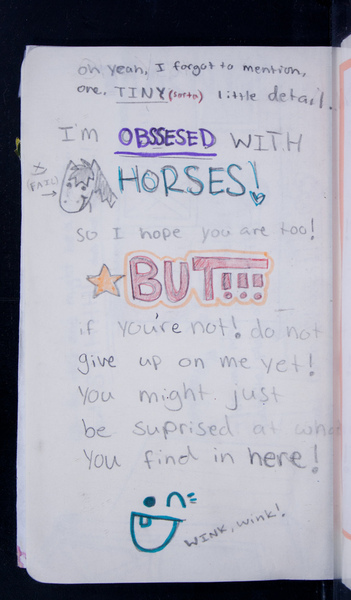 oh yeah, I forgot to mention,
one, TINY (sorta) little detail.
I'm OBSSESED WITH
HORSES!
(FAIL)
so I hope you are too!
BUT!!!!
if you're not! do not
give up on me yet!
You might just
be suprised at what
You find in here!
WINK, WINK!